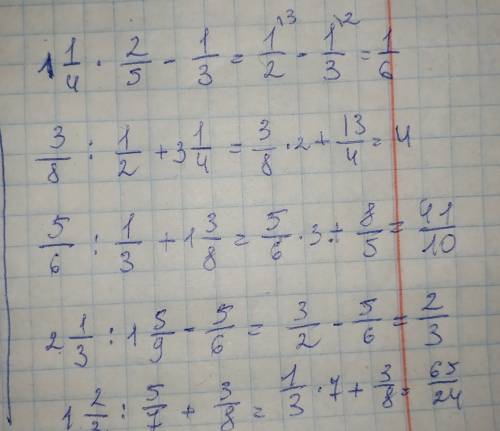 1 1/4 · 2/5 - 1/3 = 1/2 ³ - 1/3 ² = 1/6
3/8 : 1/2 + 3 1/4 = 3/8 · 2 + 13/4 = 4
5/6 : 1/3 + 1 3/8 = 5/6 · 3 + 8/5 = 41/10
2 1/3 : 1 5/9 - 5/6 = 3/2 - 5/6 = 2/3
1 2/3 : 5/7 + 3/8 = 1/3 · 7 + 3/8 = 65/24